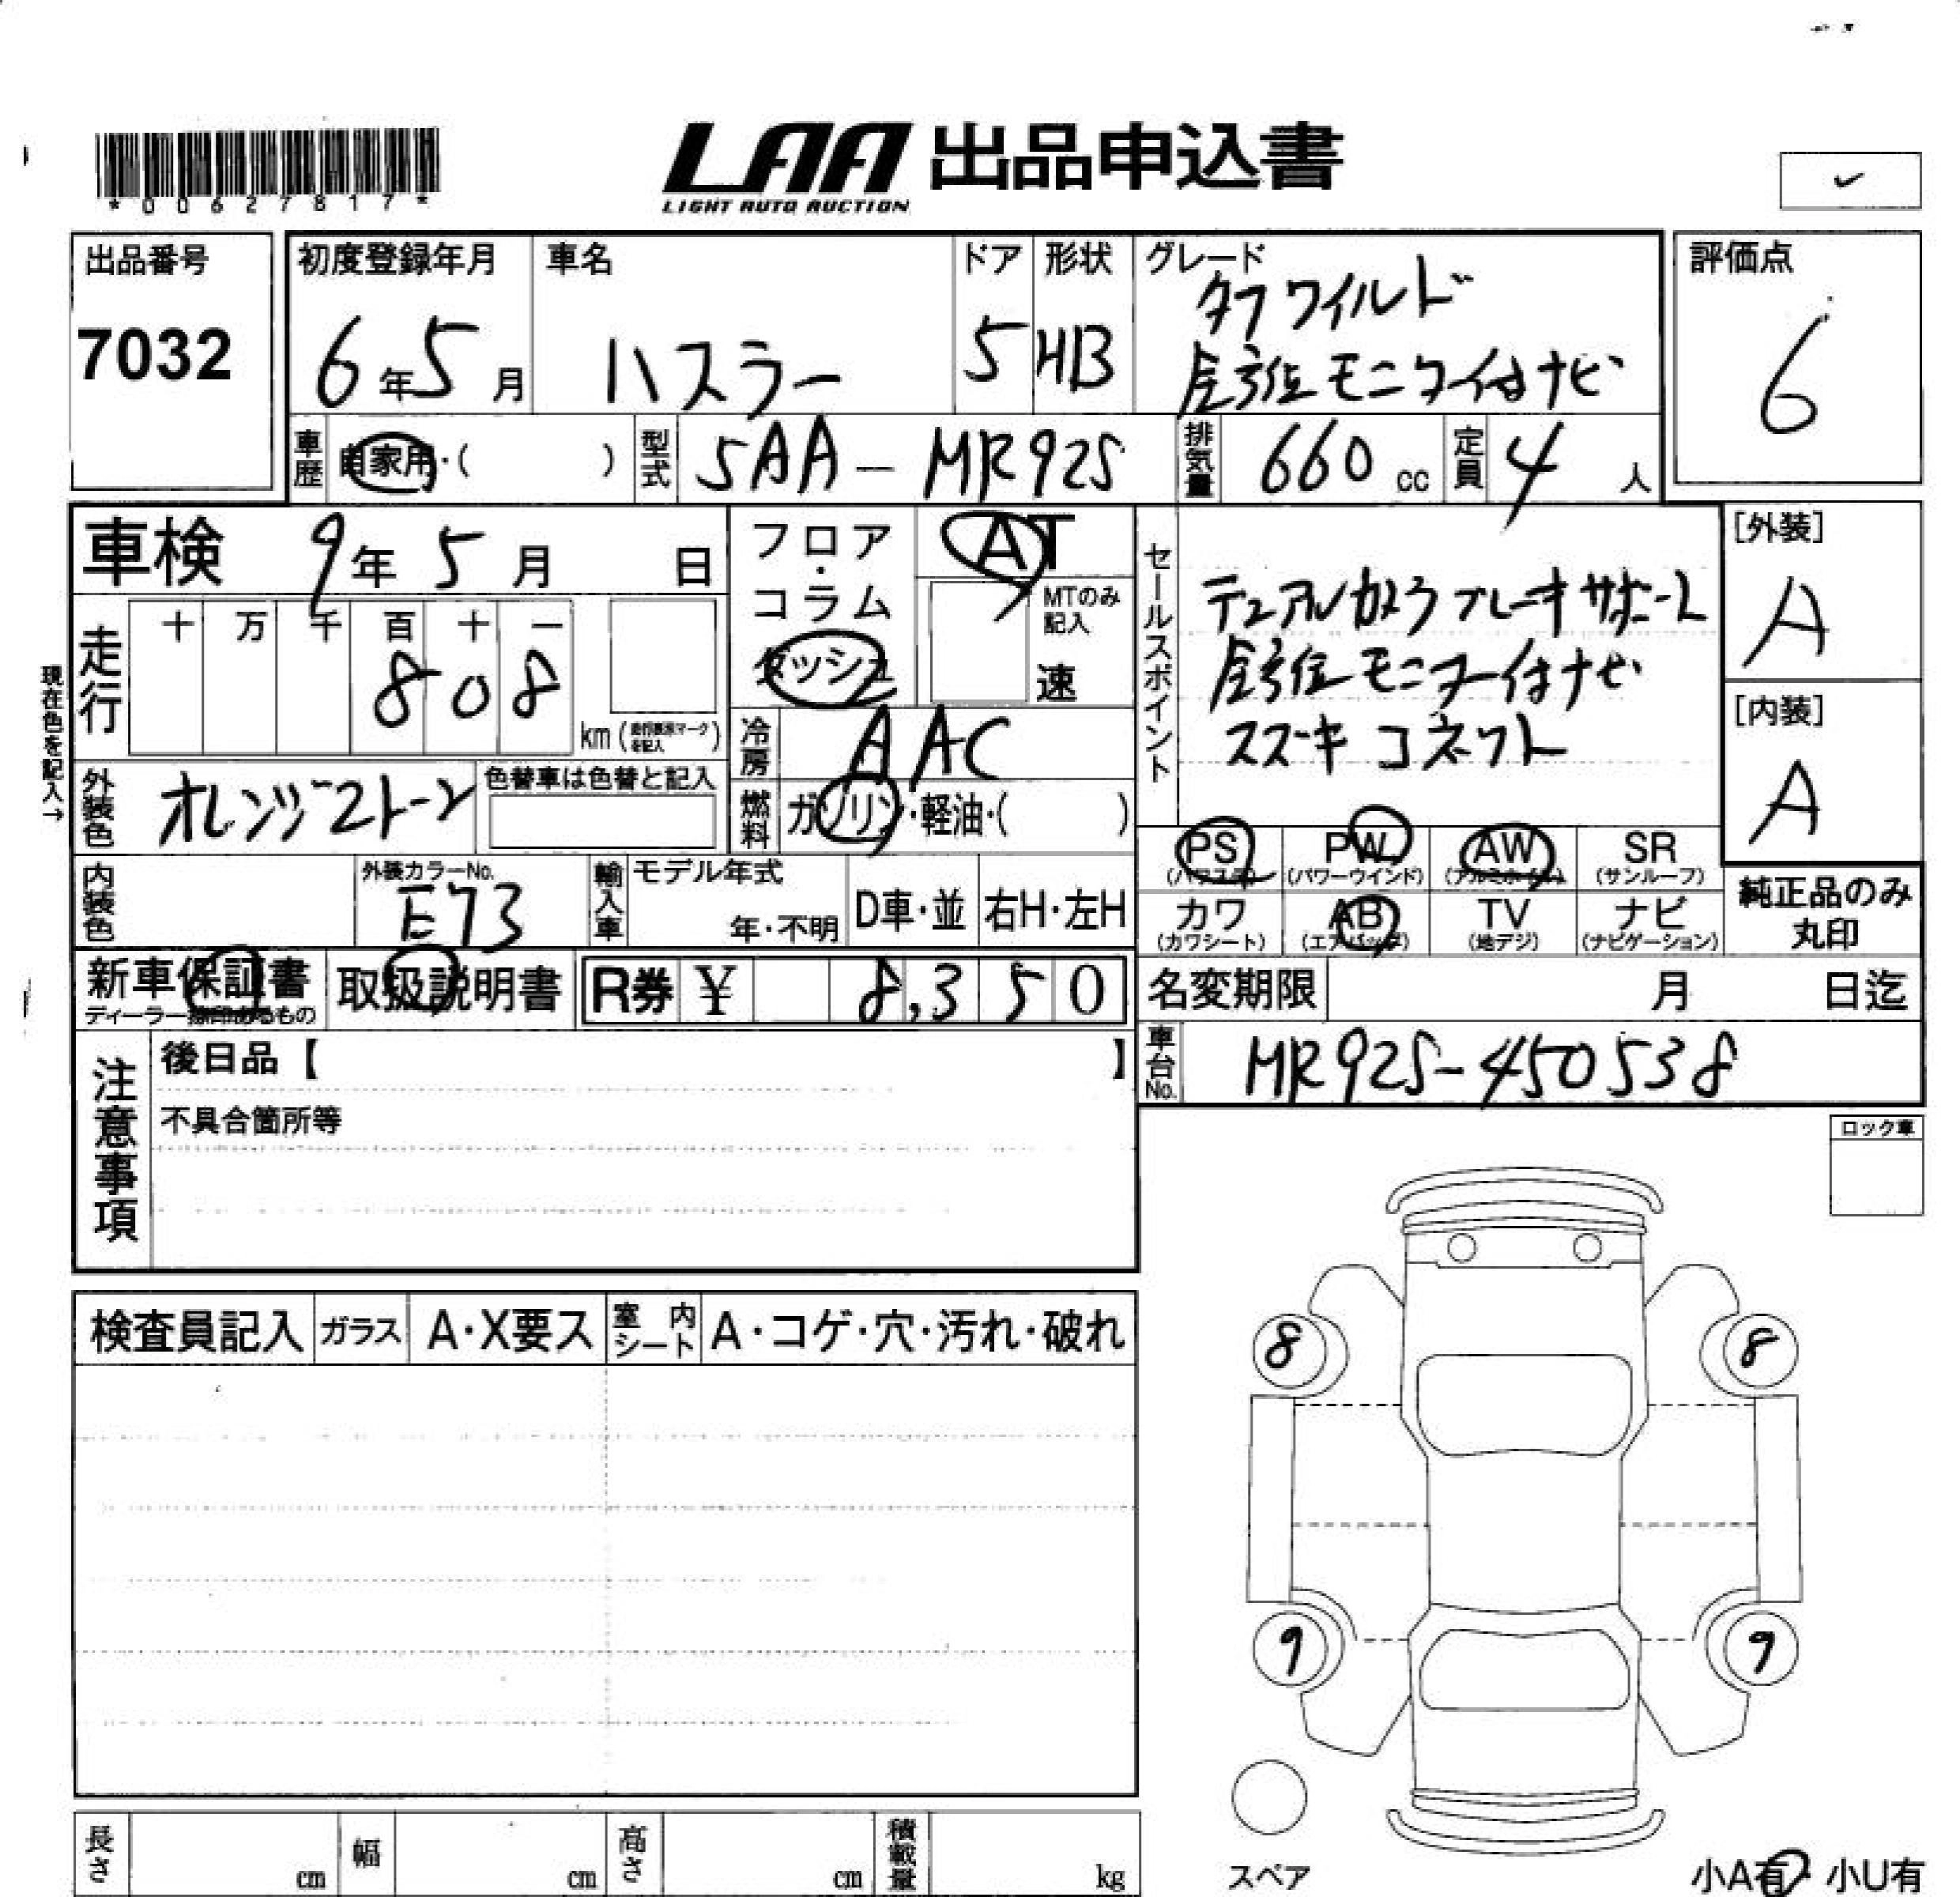 *00627817*
LAA 出品申込書
LIGHT AUTO AUCTION
出品番号
7032
初度登録年月
6年5月
車名
ハスラー
ドア
5
形状
HB
グレード
タフワイルド
全方位モニター付ナビ
評価点
6
車歴 自家用・( )
型式 5AA-MR92S
排気量 660 cc
定員 4 人
車検 9年5月 日
フロア・コラム
ダッシュ
AT
MTのみ記入
速
走行 十 万 千 百 十 一
808
km(走行表示マークを記入)
現在色を記入→
冷房 AAC
外装色 オレンジ2トーン
色替車は色替と記入
燃料 ガソリン・軽油・( )
セールスポイント
デュアルカメラブレーキサポート
全方位モニター付ナビ
スズキコネクト
[外装]
A
[内装]
A
内装色
外装カラーNo.
E73
輸入車 モデル年式
年・不明
D車・並
右H・左H
PS
(パワステ)
PW
(パワーウインド)
AW
(アルミホイル)
SR
(サンルーフ)
カワ
(カワシート)
AB
(エアバッグ)
TV
(地デジ)
ナビ
(ナビゲーション)
純正品のみ
丸印
新車保証書
ディーラー捺印あるもの
取扱説明書
R券 ¥ 8,350
名変期限 月 日迄
車台No. MR92S-450538
注意事項
後日品【 】
不具合箇所等
ロック車
検査員記入
ガラス A・X要ス
室内シート A・コゲ・穴・汚れ・破れ
8 8
9 9
スペア
長さ cm
幅 cm
高さ cm
積載量 kg
小A有・小U有